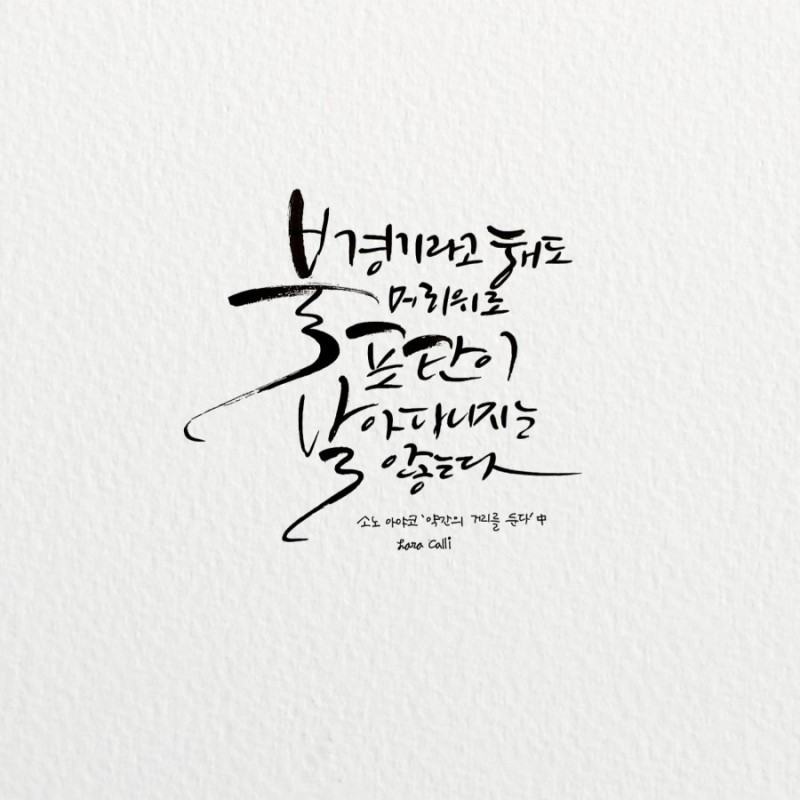 불경기라고 해도
머리위로
포탄이
날아다니지는
않는다
소노 아야코 '약간의 거리를 둔다' 中
Lara Calli